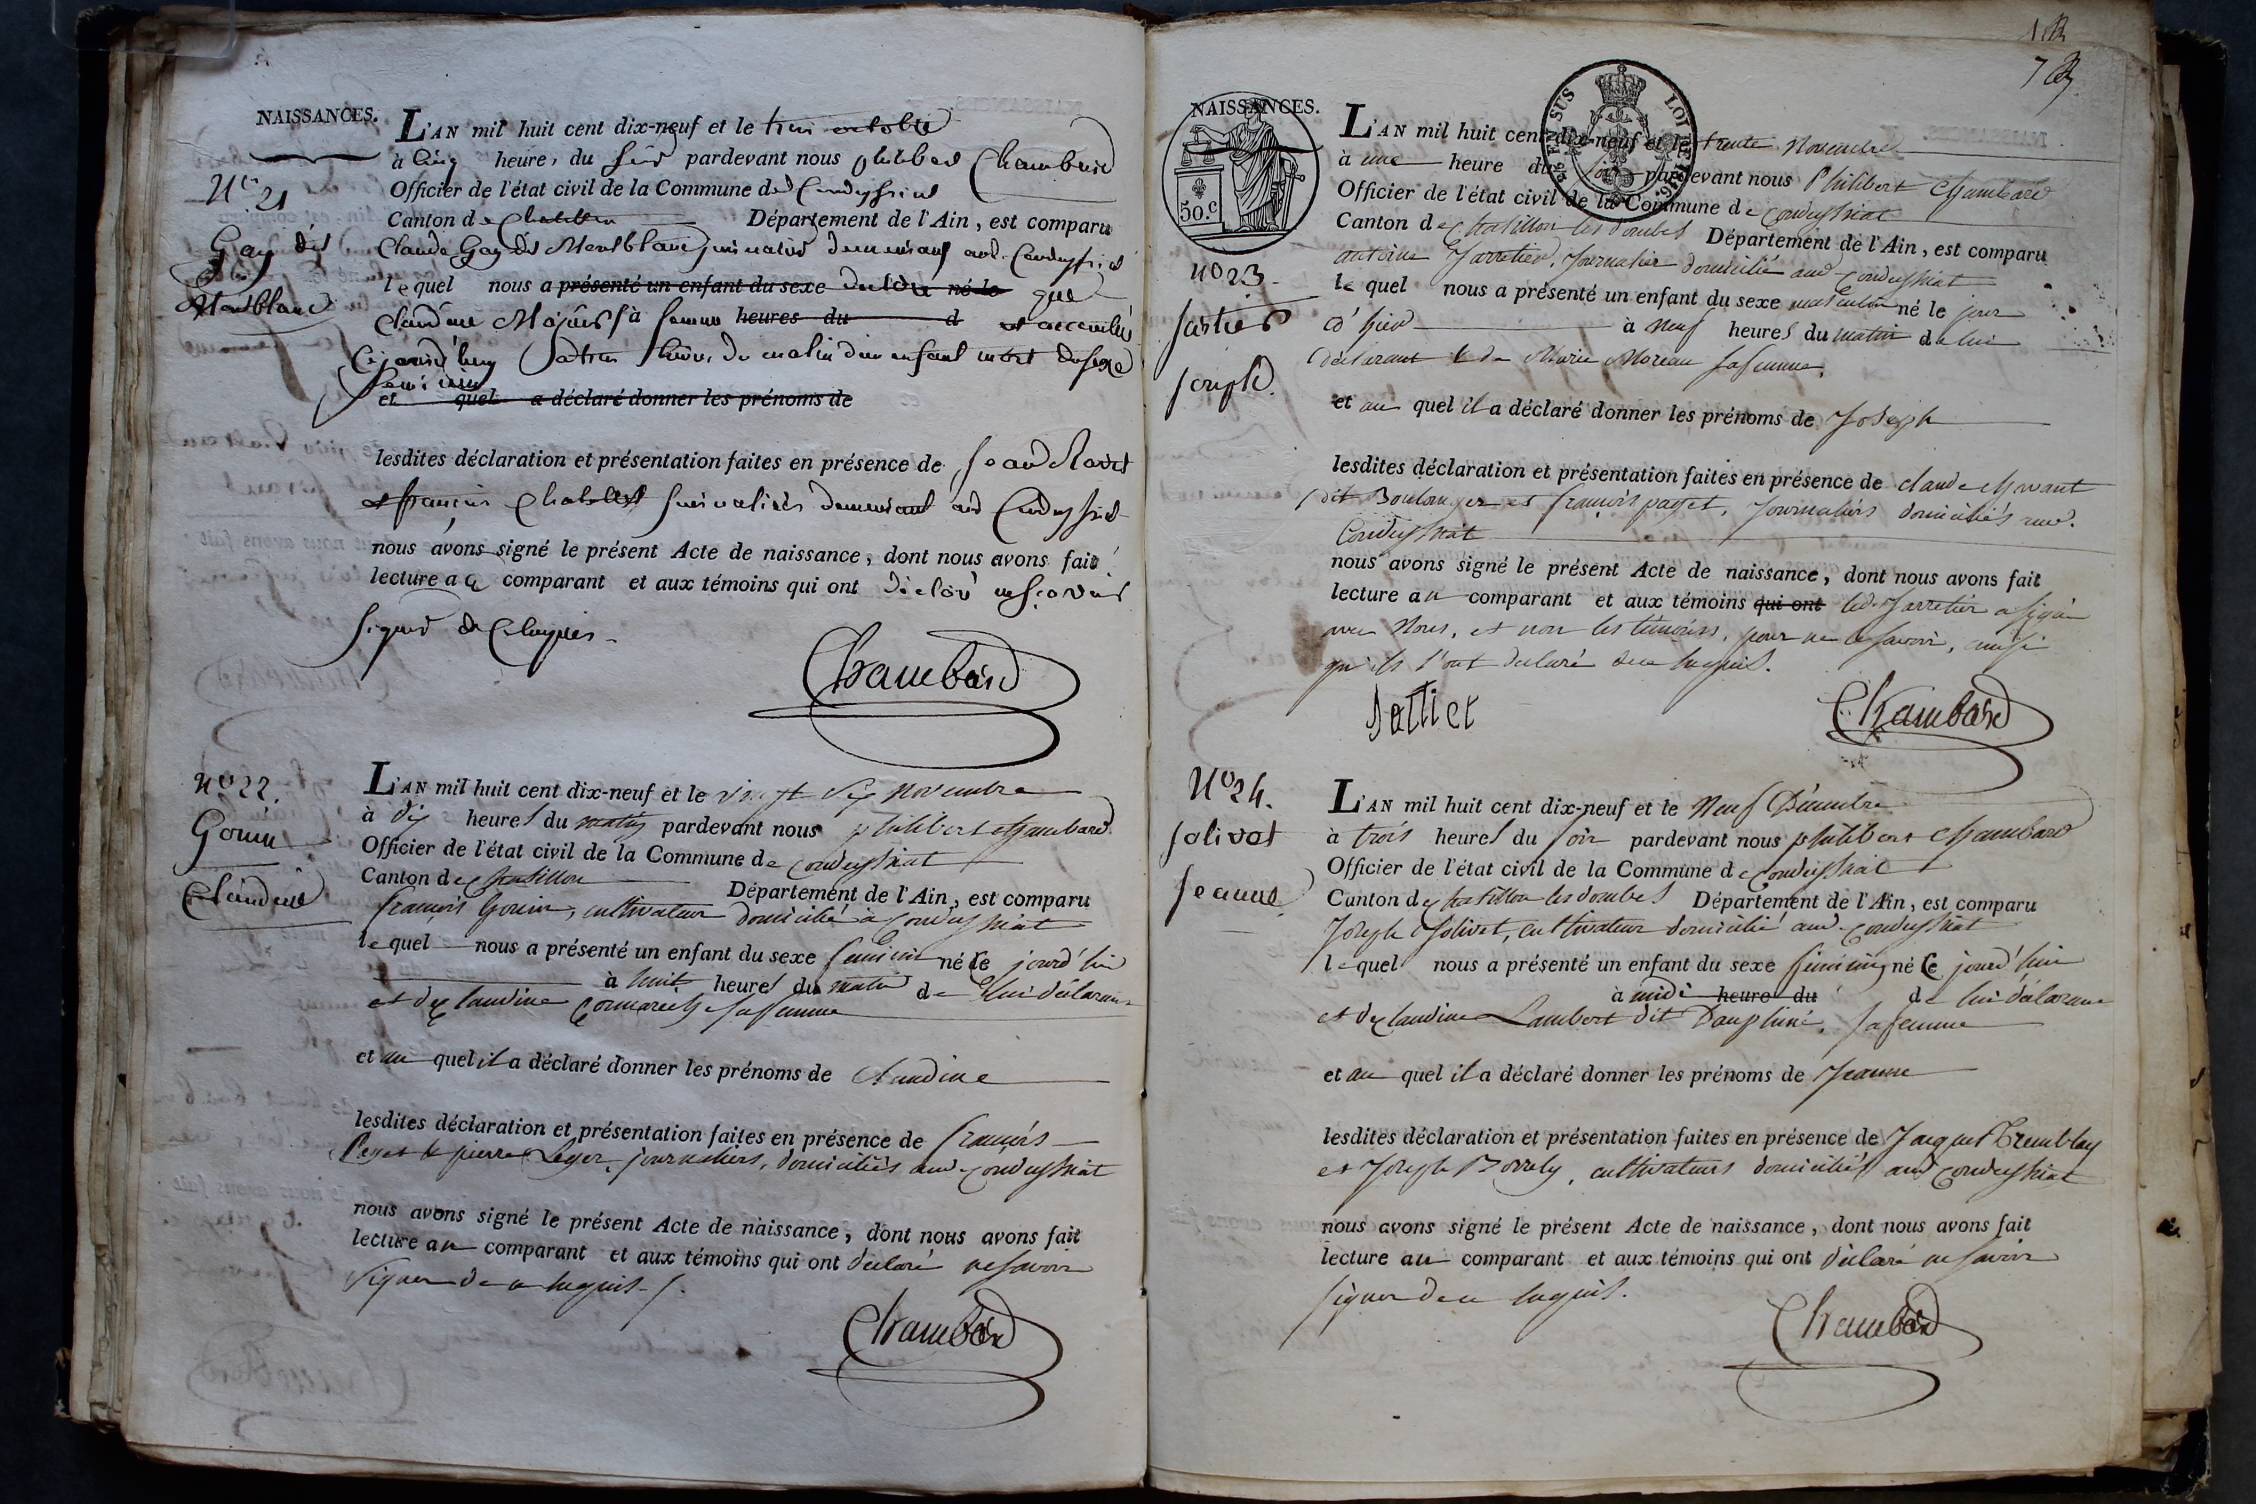 NAISSANCES.
L'AN mil huit cent dix-neuf et le trois octobre
à cinq heures du soir pardevant nous philibert Chambard
Officier de l'état civil de la Commune de Condeyssiat
Canton de Chatillon Département de l'Ain, est comparu
N° 21
Gay dit
Montblanc
Claude Gay dit Montblanc journalier demeurant aud. Condeyssiat
lequel nous a présenté un enfant du sexe né le que
Claudine sa femme heures du d est accouchée
Cejourd'huy à trois heures du matin d'un enfant mort du sexe
feminin
et quel a déclaré donner les prénoms de
lesdites déclaration et présentation faites en présence de Jean
et françois journaliers demeurant aud Condeyssiat
nous avons signé le présent Acte de naissance, dont nous avons fait
lecture a comparant et aux témoins qui ont déclaré ne savoir
signer de ce requis.
Chambard
N° 22.
Gouin
Claudine
L'AN mil huit cent dix-neuf et le vingt six novembre
à dix heures du matin pardevant nous philibert Chambard
Officier de l'état civil de la Commune de Condeyssiat
Canton de Chatillon Département de l'Ain, est comparu
françois Gouin, cultivateur domicilié à Condeyssiat
lequel nous a présenté un enfant du sexe feminin né ce jourd'hui
à huit heures du matin de lui déclarant
et de Claudine sa femme
et au quel il a déclaré donner les prénoms de Claudine
lesdites déclaration et présentation faites en présence de françois
Peget & pierre Leger, journaliers, domiciliés aud. Condeyssiat
nous avons signé le présent Acte de naissance, dont nous avons fait
lecture au comparant et aux témoins qui ont déclaré ne savoir
signer de ce requis.
Chambard
7
NAISSANCES.
50.c
EN SUS
LOI DE 1816.
L'AN mil huit cent dix-neuf et le trente Novembre
à une heure du soir pardevant nous Philibert Chambard
Officier de l'état civil de la Commune de Condeyssiat
Canton de Chatillon les dombes Département de l'Ain, est comparu
N° 23
Joseph.
antoine Jarretier, Journalier domicilié aud. Condeyssiat
le quel nous a présenté un enfant du sexe masculin né le jour
d'hier à neuf heures du matin de lui
déclarant & de Marie Moreau sa femme,
et au quel il a déclaré donner les prénoms de Joseph
lesdites déclaration et présentation faites en présence de claude
dit Boulanger et françois paget, journaliers domiciliés aud.
Condeyssiat
nous avons signé le présent Acte de naissance, dont nous avons fait
lecture au comparant et aux témoins qui ont led. Jarretier a signé
avec Nous, et non les témoins, pour ne le savoir, ainsi
qu'ils l'ont déclaré de ce requis.
Jattiet
Chambard
N° 24.
Jolivet
Jeanne
L'AN mil huit cent dix-neuf et le Neuf Décembre
à trois heures du soir pardevant nous philibert Chambard
Officier de l'état civil de la Commune de Condeyssiat
Canton de Chatillon les dombes Département de l'Ain, est comparu
Joseph Jolivet, cultivateur domicilié aud. Condeyssiat
lequel nous a présenté un enfant du sexe feminin né ce jourd'hui
à midi heure du de lui déclarant
et de Claudine Lambert dit Dauphiné, sa femme
et au quel il a déclaré donner les prénoms de Jeanne
lesdites déclaration et présentation faites en présence de Jacques Tremblay
et Joseph Borrely, cultivateurs domiciliés aud Condeyssiat
nous avons signé le présent Acte de naissance, dont nous avons fait
lecture au comparant et aux témoins qui ont déclaré ne savoir
signer de ce requis.
Chambard